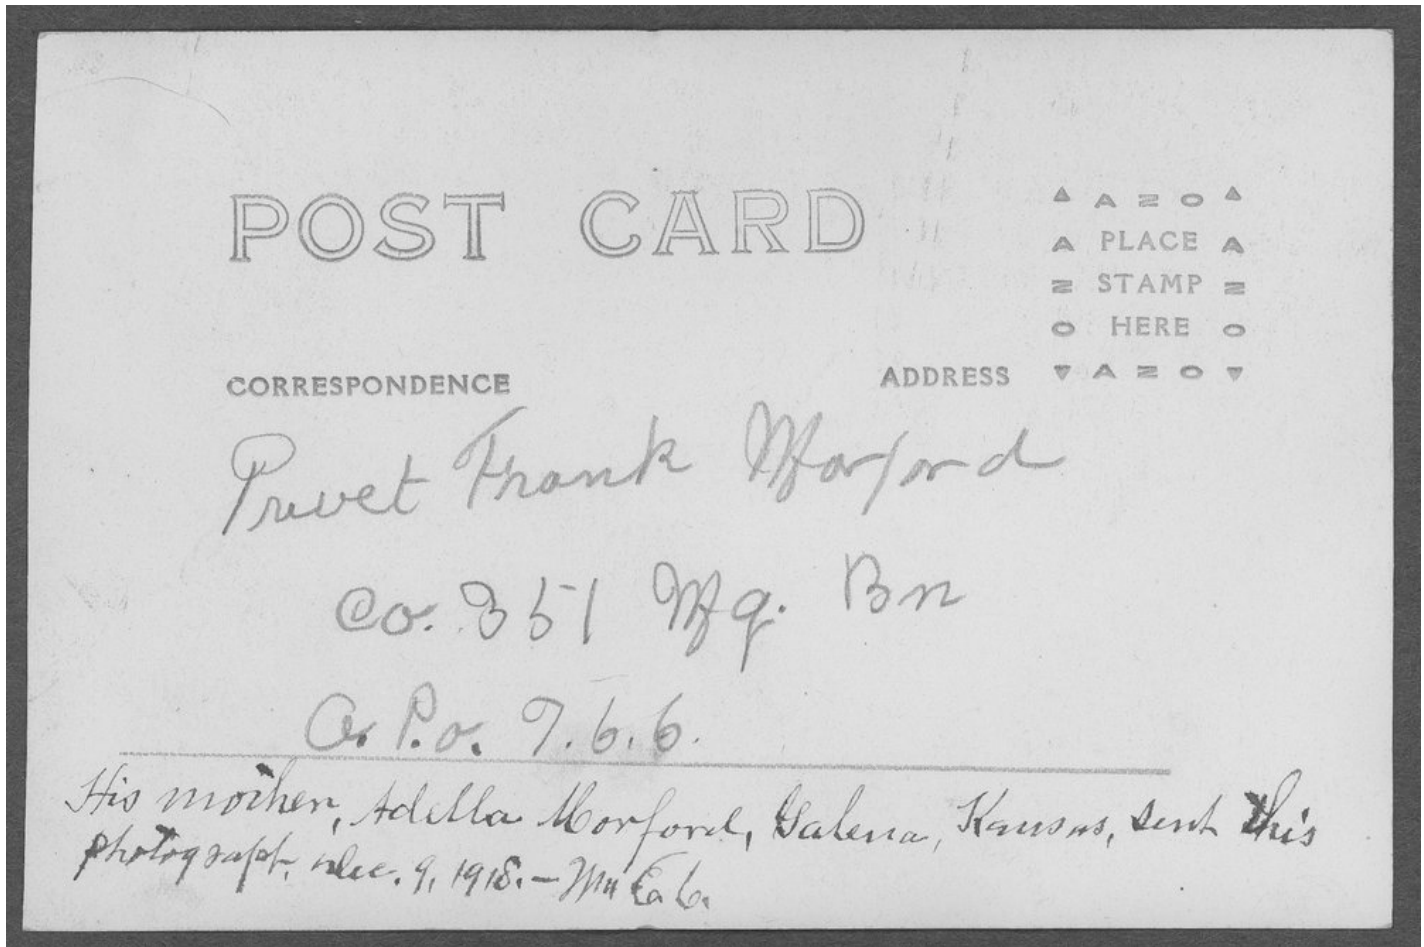 POST CARD
▲ AZO ▲
A PLACE A
Z STAMP Z
O HERE O
▼ AZO ▼
CORRESPONDENCE
ADDRESS
Privet Frank Morford
Co. 351 Mg. Bn
A. P.O. 7.6.6.
His mother, Adella Morford, Galena, Kansas, sent this
photograph. Dec. 9, 1918. —